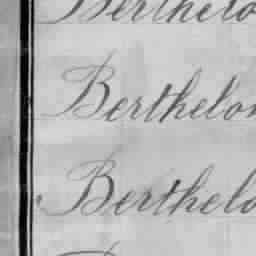 Berthelo
Berthelon
Berthelo